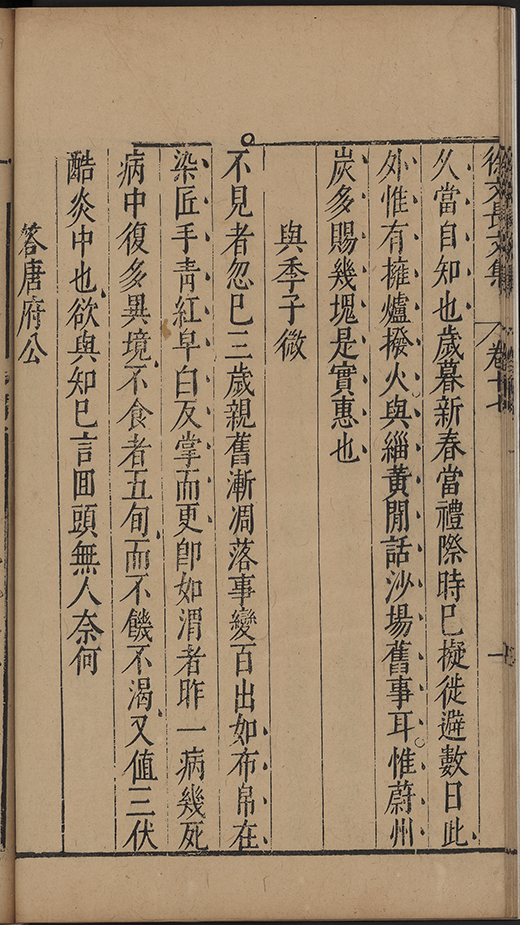 徐文長文集 卷十七
久當自知也歲暮新春當禮際時已擬徙避數日此
外惟有擁爐撥火與緇黃閒話沙場舊事耳惟蔚州
炭多賜幾塊是實惠也
與季子微
不見者忽已三歲親舊漸凋落事變百出如布帛在
染匠手青紅皁白反掌而更卽如渭者昨一病幾死
病中復多異境不食者五旬而不饑不渴又值三伏
酷炎中也欲與知已言回頭無人奈何
答唐府公